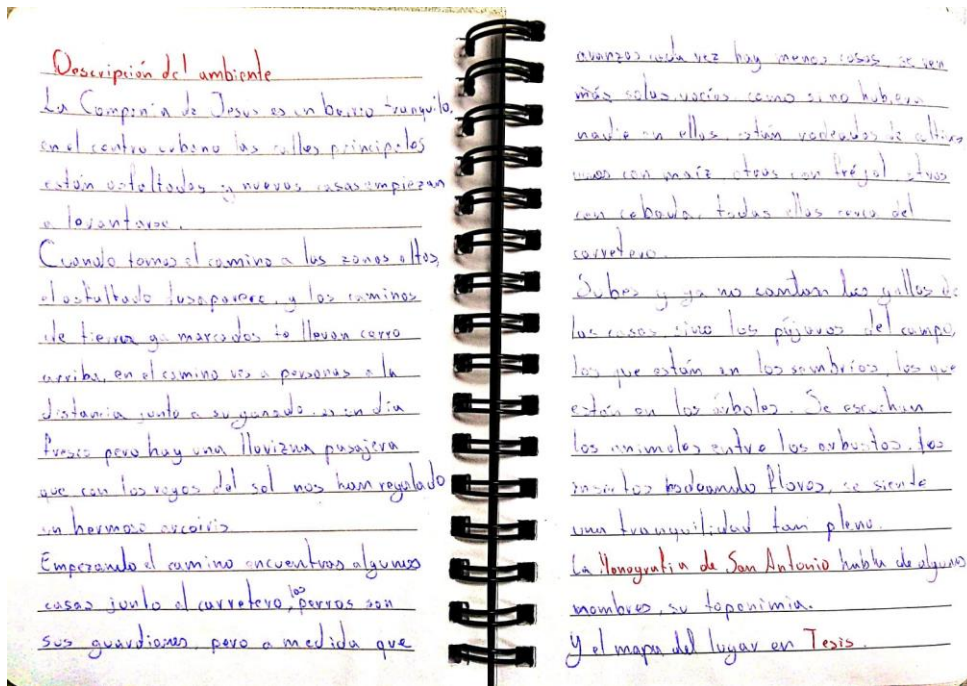 Descripción del ambiente
La Compania de Jesus es un barrio tranquilo.
en el centro urbano las calles principales
están asfaltadas y nuevas casas empiezan
a levantarse.
Cuando tomas el camino a las zonas altas,
el asfaltado desaparece, y los caminos
de tierra ya marcados te llevan cerro
arriba, en el camino ves a personas a la
distancia junto a su ganado. es un día
fresco pero hay una llovizna pasajera
que con los rayos del sol nos han regalado
un hermoso arcoiris
Empezando el camino encuentras algunas
casas junto al carretero, los perros son
sus guardianes, pero a medida que
avanzas cada vez hay menos casas, se ven
más solas, vacías como si no hubiera
nadie en ellas, están rodeadas de cultivos
unas con maíz, otras con fréjol, otras
con cebada, todas ellas cerca del
carretero.
Subes y ya no cantan los gallos de
las casas, sino los pájaros del campo,
los que están en los sembríos, los que
están en los árboles. Se escuchan
los animales entre los arbustos, los
insectos bodeando flores, se siente
una tranquilidad tan plena.
La Monografía de San Antonio habla de algunos
nombres, su toponimia.
Y el mapa del lugar en Tesis.